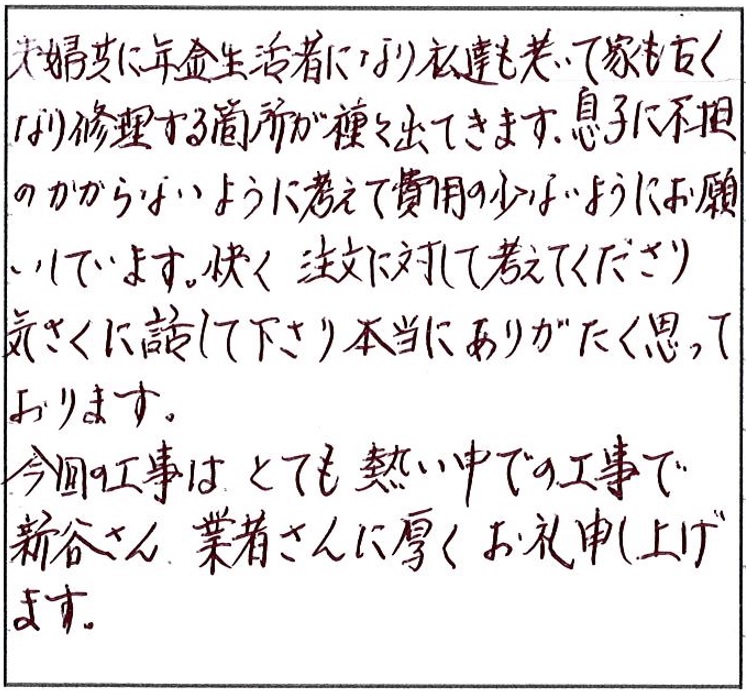 夫婦共に年金生活者になり私達も老いて家も古く
なり修理する箇所が種々出てきます。息子に不担
のかからないように考えて費用の少ないようにお願
いしています。快く注文に対して考えてくださり
気さくに話して下さり本当にありがたく思って
おります。
今回の工事はとても熱い中での工事で
新谷さん 業者さんに厚くお礼申し上げ
ます。